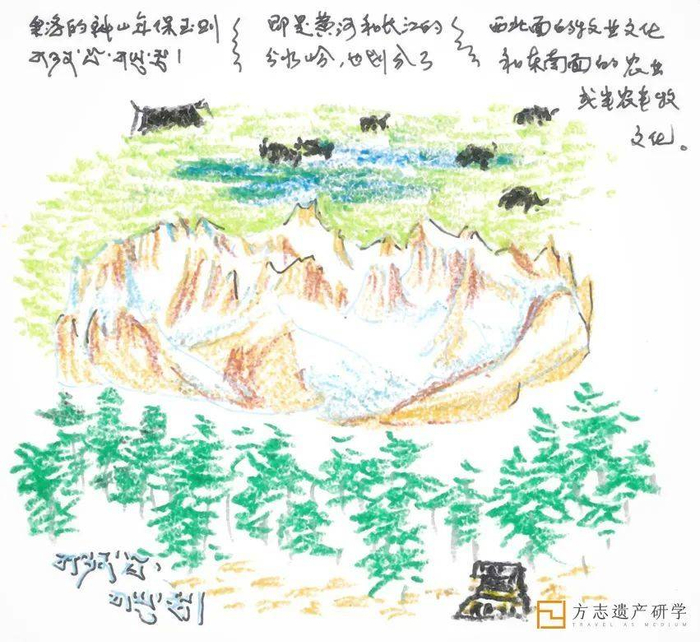 果洛的神山年保玉则
即是黄河和长江的
分水岭，也划分了
西北面的牧业文化
和东南面的农业
或半农半牧
文化。
方志遗产研学
TRAVEL AS MEDIUM